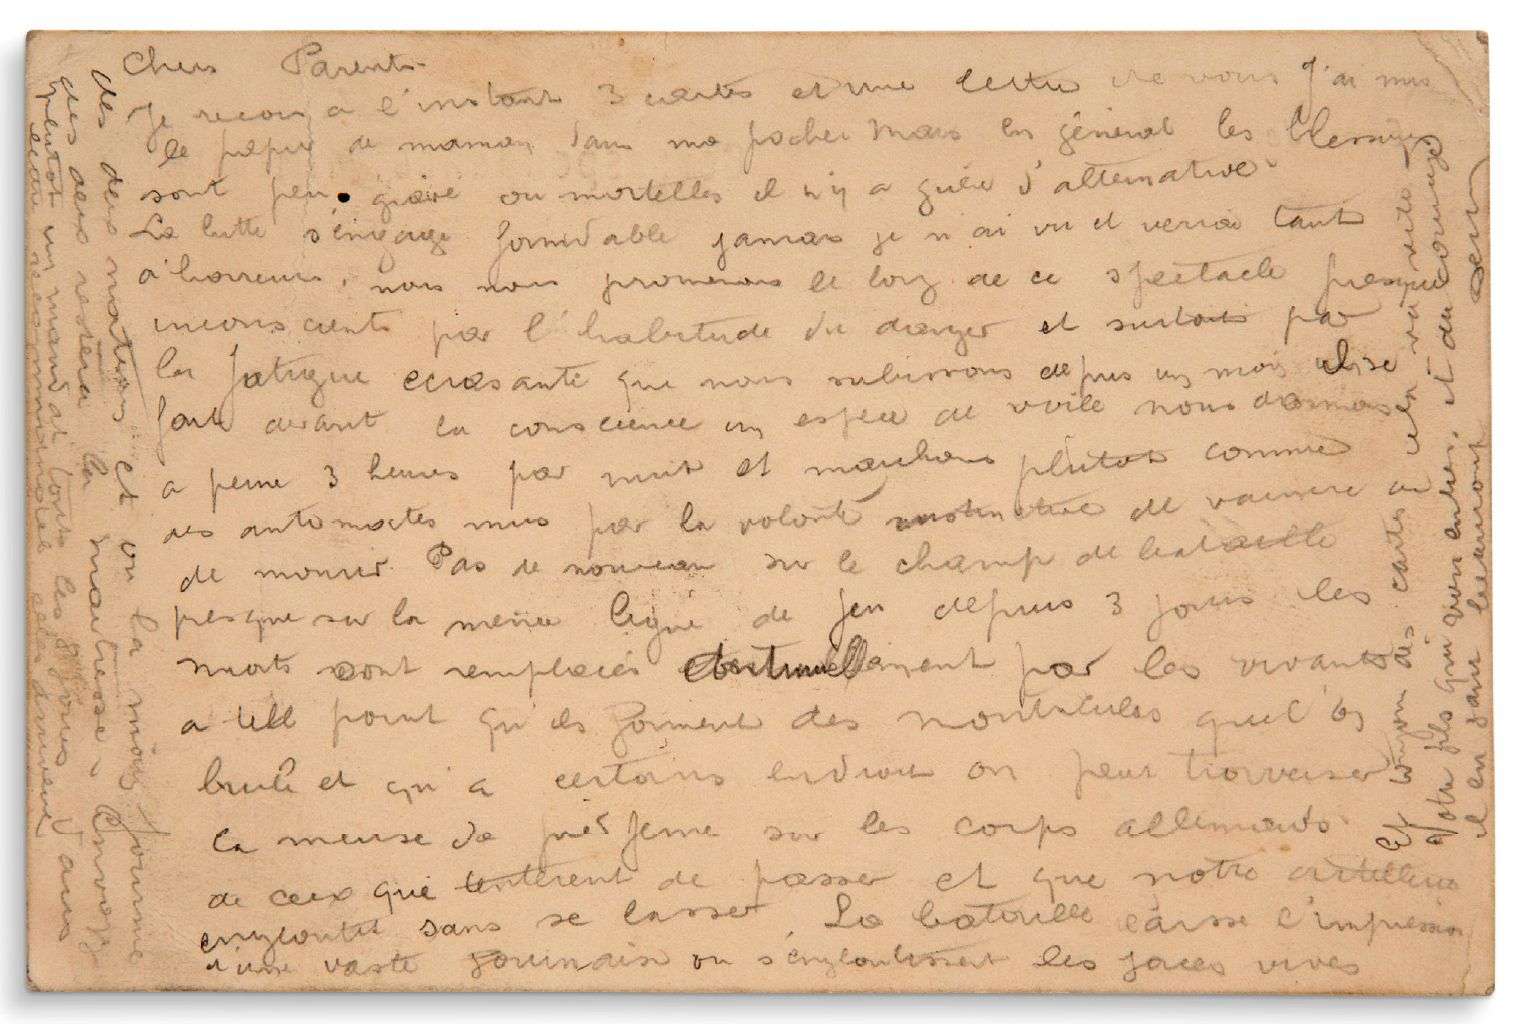 Chers Parents
Je reçois a l'instant 3 cartes et une lettre de vous J'ai mis
le papier de maman dans ma poche Mais en général les blessures
sont peu grave ou mortelles il n'y a guère d'alternative
La lutte s'engage formidable jamais je n'ai vu et verrai tant
d'horreurs, nous nous promenons le long de ce spectacle presque
inconscients par l'habitude du danger et surtout par
la fatigue ecrasante que nous subissons depuis un mois
devant la conscience un espèce de voile nous dormons
a peine 3 heures par nuit et marchons plutôt comme
des automates mus par la volonté instinctive de vaincre ou
de mourir Pas de nouveau sur le champ de bataille
presque sur la même ligne de feu depuis 3 jours les
morts sont remplacés continuellement par les vivants
a tell point qu'ils forment des monticules que l'on
brule et qu'a certains endroit on peut traverser
la meuse de pied ferme sur les corps allemands
de ceux que tentèrent de passer et que notre artillerie
engloutit sans se lasser La bataille laisse l'impression
d'une vaste fournaise ou s'engloutissent les forces vives
des deux nations et ou la fournie
des deux restera la maitresse. Envoyez
plutot un mandat tous les 8 jours dans
lettre recommandée elles arrivent
et du courage
Votre fils qui vous embrasse
il en faut beaucoup